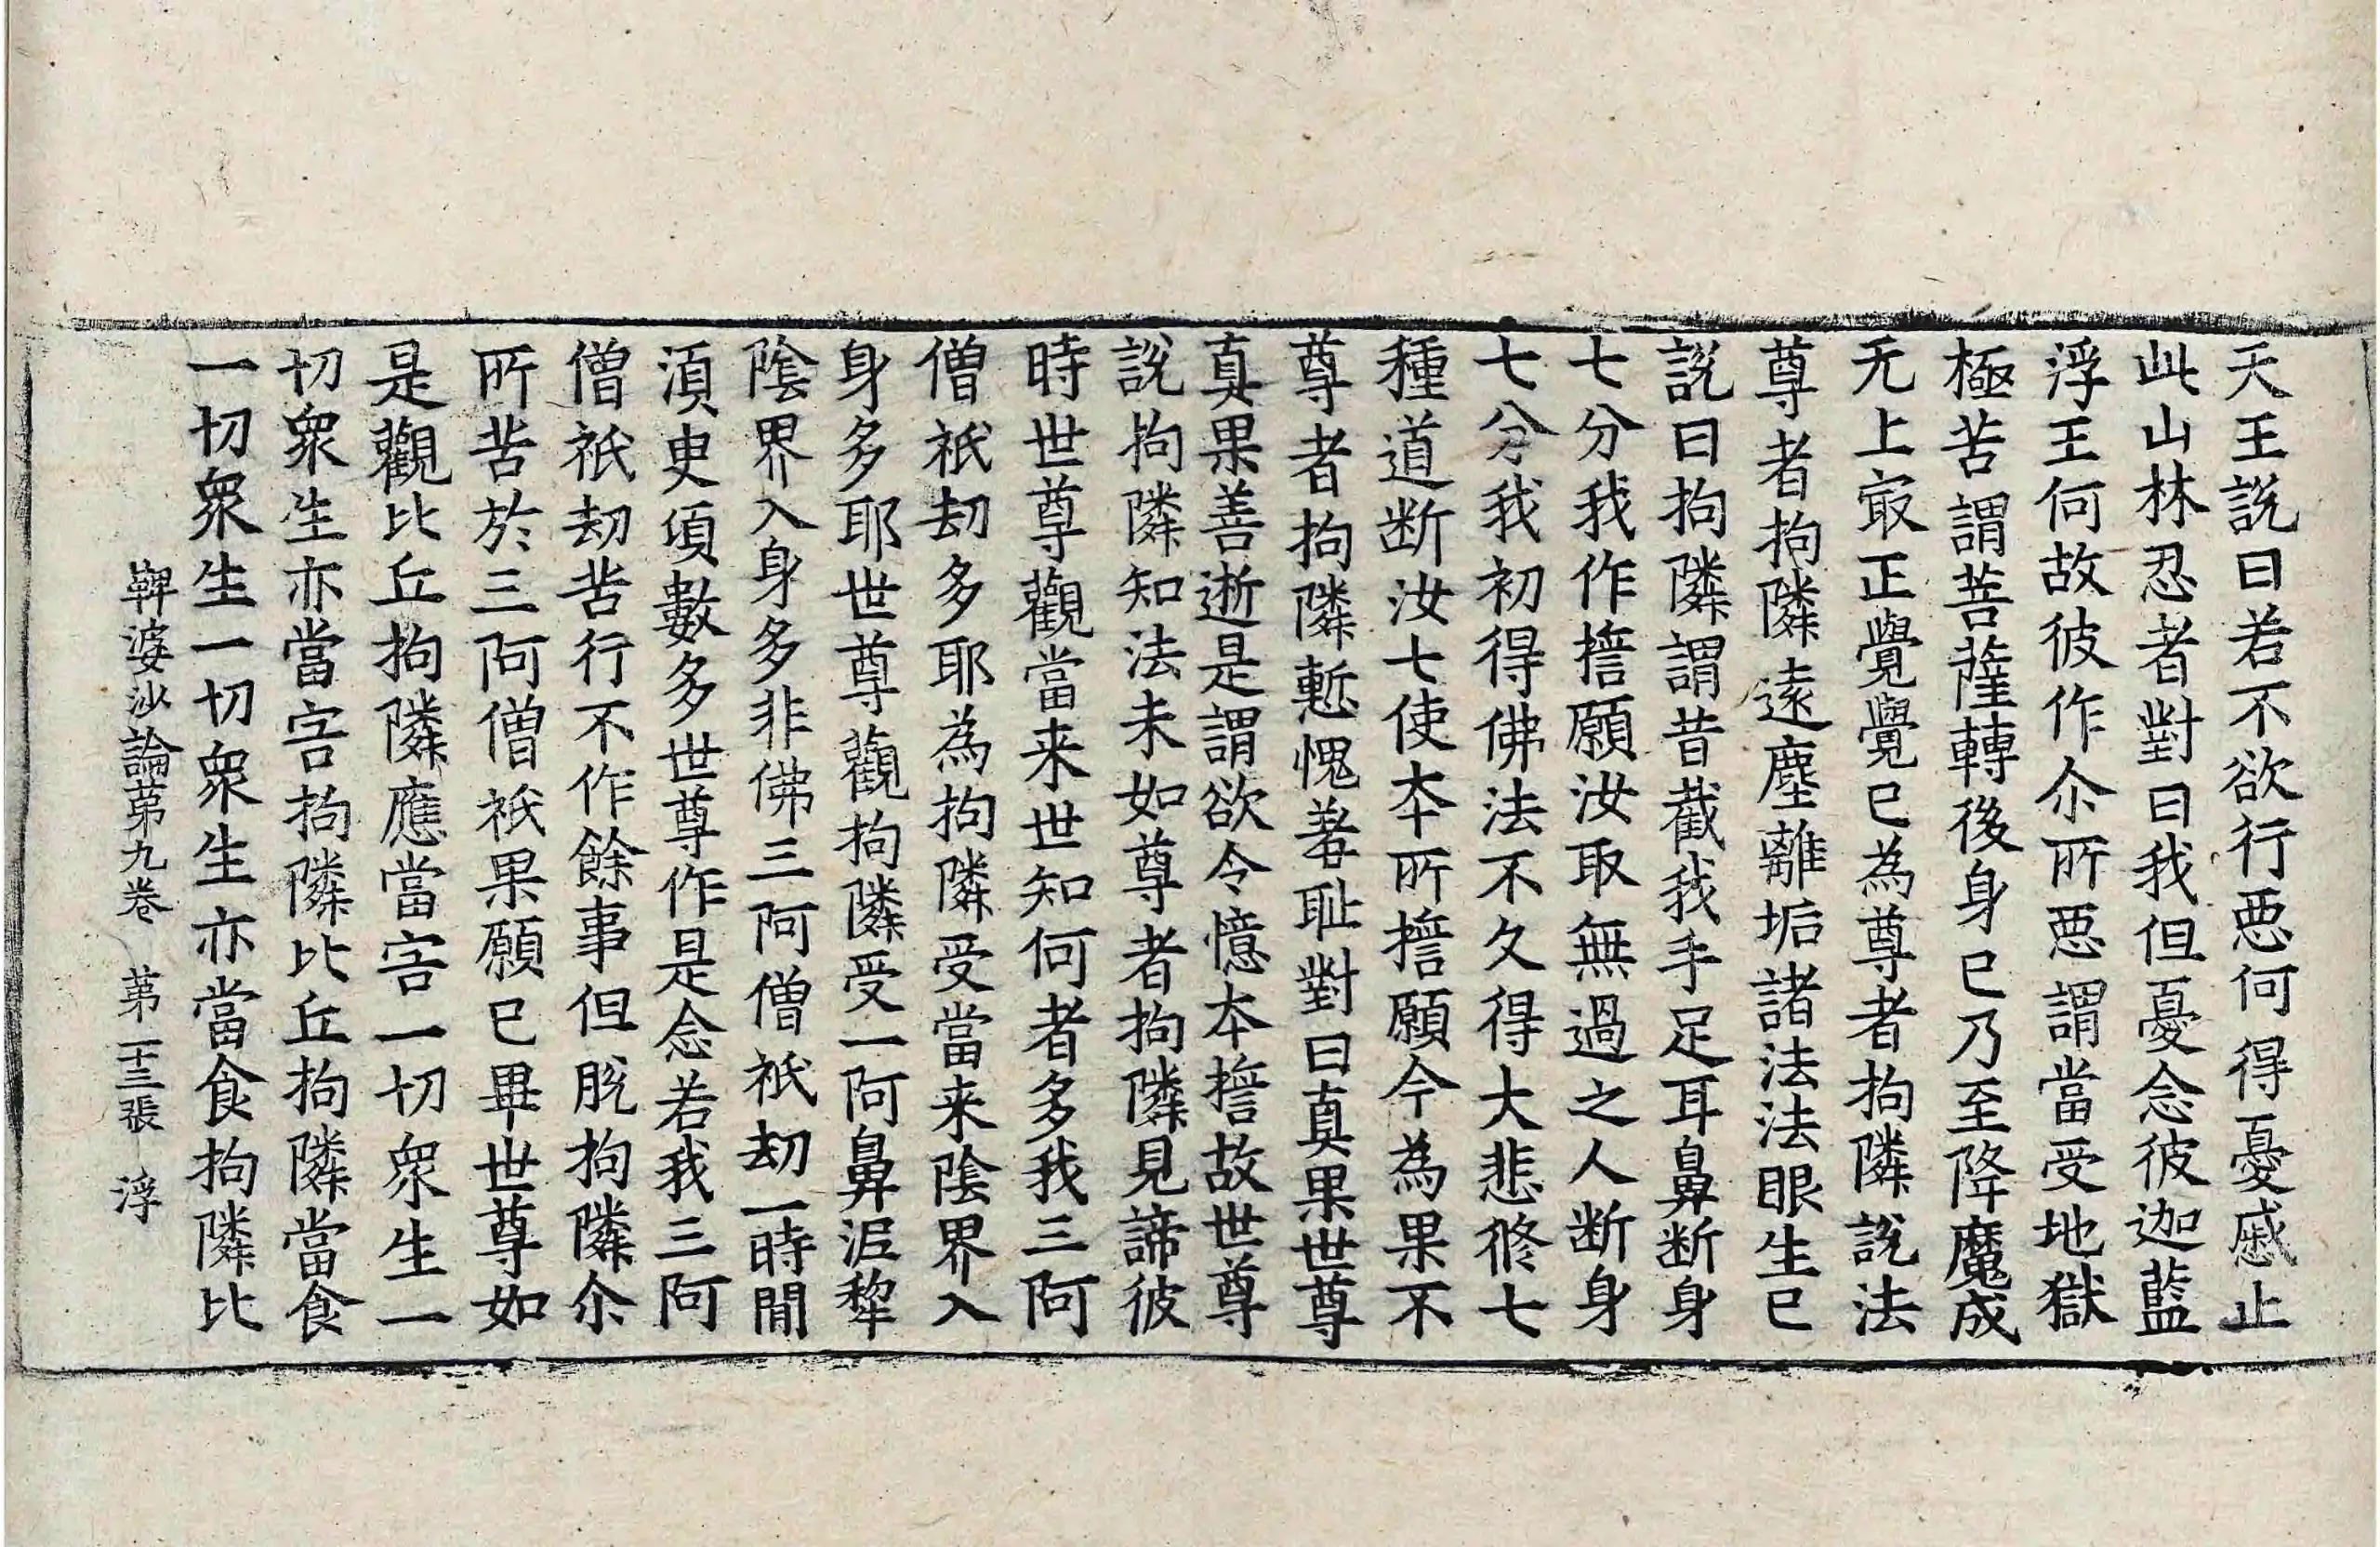 天王説曰若不欲行惡何得憂慼止
此山林忍者對曰我但憂念彼迦藍
浮王何故彼作尒所惡謂當受地獄
極苦謂菩薩轉後身已乃至降魔成
无上㝡正覺覺已為尊者拘隣說法
尊者拘隣遠塵離垢諸法法眼生已
說曰拘隣謂昔截我手足耳鼻断身
七分我作誓願汝取無過之人断身
七分我初得佛法不久得大悲修七
種道断汝七使本所誓願今為果不
尊者拘隣慙愧著恥對曰真果世尊
真果善逝是謂欲令憶本誓故世尊
說拘隣知法未如尊者拘隣見諦彼
時世尊觀當来世知何者多我三阿
僧祇劫多耶為拘隣受當来陰界入
身多耶世尊觀拘隣受一阿鼻泥犂
陰界入身多非佛三阿僧祇劫一時間
須臾頃數多世尊作是念若我三阿
僧祇劫苦行不作餘事但脫拘隣尒
所苦於三阿僧祇果願已畢世尊如
是觀比丘拘隣應當害一切衆生一
切衆生亦當害拘隣比丘拘隣當食
一切衆生一切衆生亦當食拘隣比
鞞婆沙論苐九卷　苐二十三張　浮